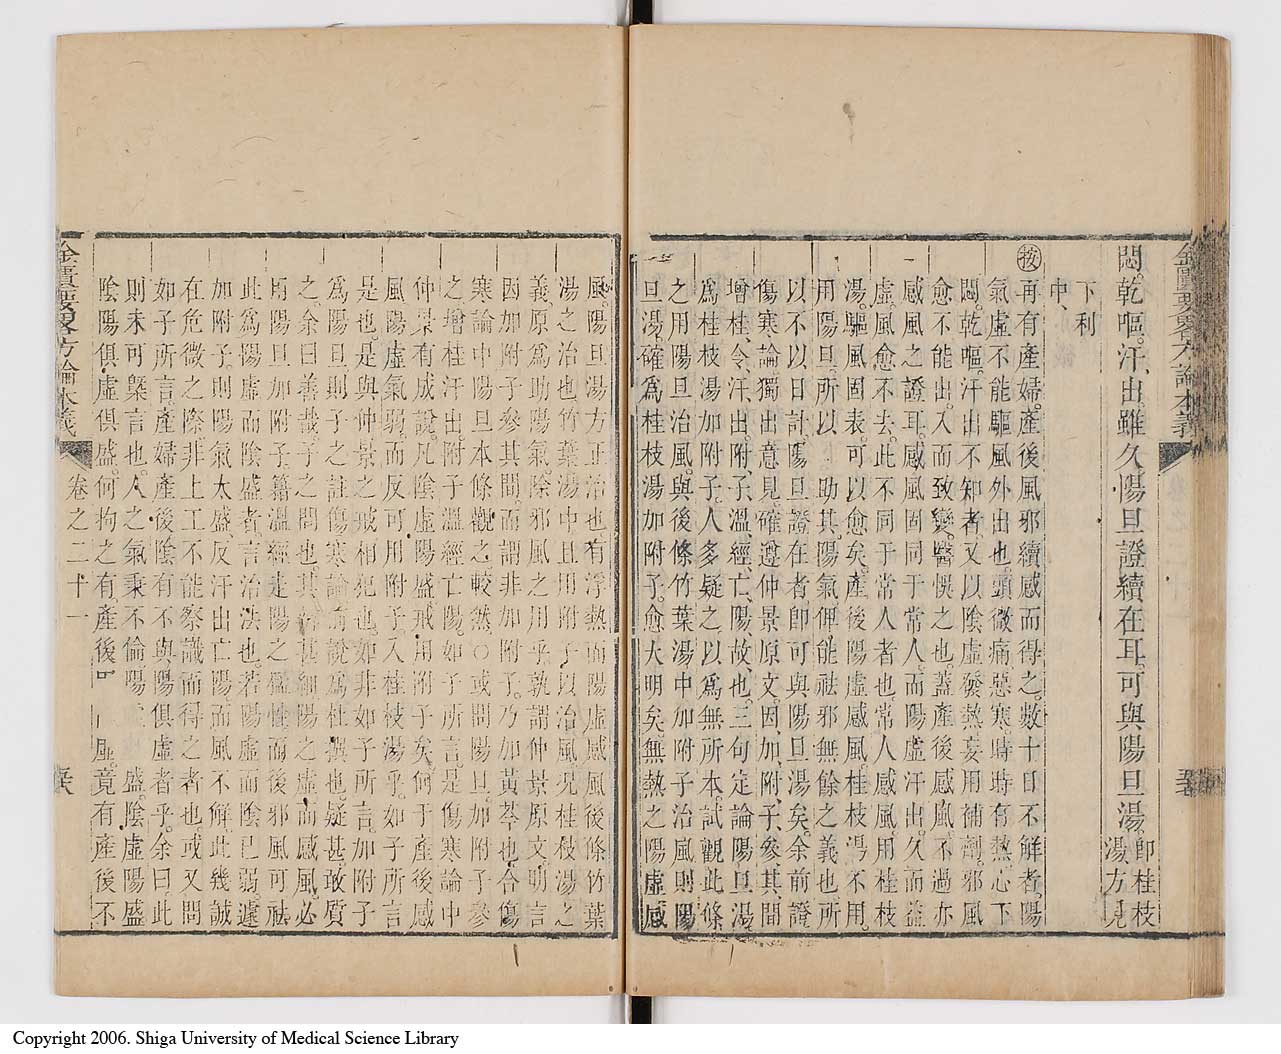 金匱要畧方論本義
悶。乾嘔。汗出雖久。陽旦證續在耳。可與陽旦湯。即桂枝湯方見
下利
中、
按再有產婦。產後風邪續感而得之。數十日不解者。陽
氣虛不能驅風外出也。頭微痛。惡寒。時時有熱。心下
悶。乾嘔。汗出不知者。又以陰虛發熱。妄用補劑。邪風
愈不能出。入而致變。醫悞之也。蓋產後感風。不過亦
感風之證耳。感風固同于常人。而陽虛汗出。久而益
虛。風愈不去。此不同于常人者也。常人感風。用桂枝
湯。驅風固表。可以愈矣。產後陽虛感風。桂枝湯不用。
用陽旦。所以助其陽氣。俾能祛邪無餘之義也。所
以不以日計。陽旦證在者。即可與陽旦湯矣。余前證
傷寒論。獨出意見。確遵仲景原文。因加附子參其間
增桂。令汗出。附子溫經。亡陽故也。三句定論陽旦湯
爲桂枝湯加附子。人多疑之。以爲無所本。試觀此條
之用陽旦治風。與後條竹葉湯中加附子治風。則陽
旦湯。確爲桂枝湯加附子。愈大明矣。無熱之陽虛感
風。陽旦湯方正治也。有浮熱而陽虛感風。後條竹葉
湯之治也。竹葉湯中且用附子以治風。況桂枝湯之
義。原爲助陽氣。除邪風之用乎。孰謂仲景原文。明言
因加附子參其間。而謂非加附子。乃加黃芩也。合傷
寒論中陽旦本條觀之。較然。○或問陽旦。加附子參
之增桂汗出。附子溫經亡陽。如子所言是傷寒論中
仲景有成說。凡陰虛陽盛。戒用附子矣。何于產後感
風。陽虛氣弱。而反可用附子入桂枝湯乎。如子所言
是也。是與仲景之戒相犯也。如非如子所言。加附子
爲陽旦。則子之註傷寒論前說爲杜撰也。疑甚。敢質
之。余曰。善哉。子之問也。其甚細。陽之虛而感風。必
用陽旦加附子。籍溫經走陽之猛性。而後邪風可祛
此爲陽虛而陰盛者。言治法也。若陽虛而陰已弱。遽
加附子。則陽氣太盛。反汗出亡陽。而風不解。此幾誠
在危微之際。非上工不能察識而得之者也。或又問
如子所言。產婦產後。陰有不與陽俱虛者乎。余曰。此
則未可槩言也。人之氣秉不倫。陽盛陰虛陽盛
陰陽俱虛俱盛。何拘之有。產後虛。竟有產後不
金匱要畧方論本義
卷之二十一